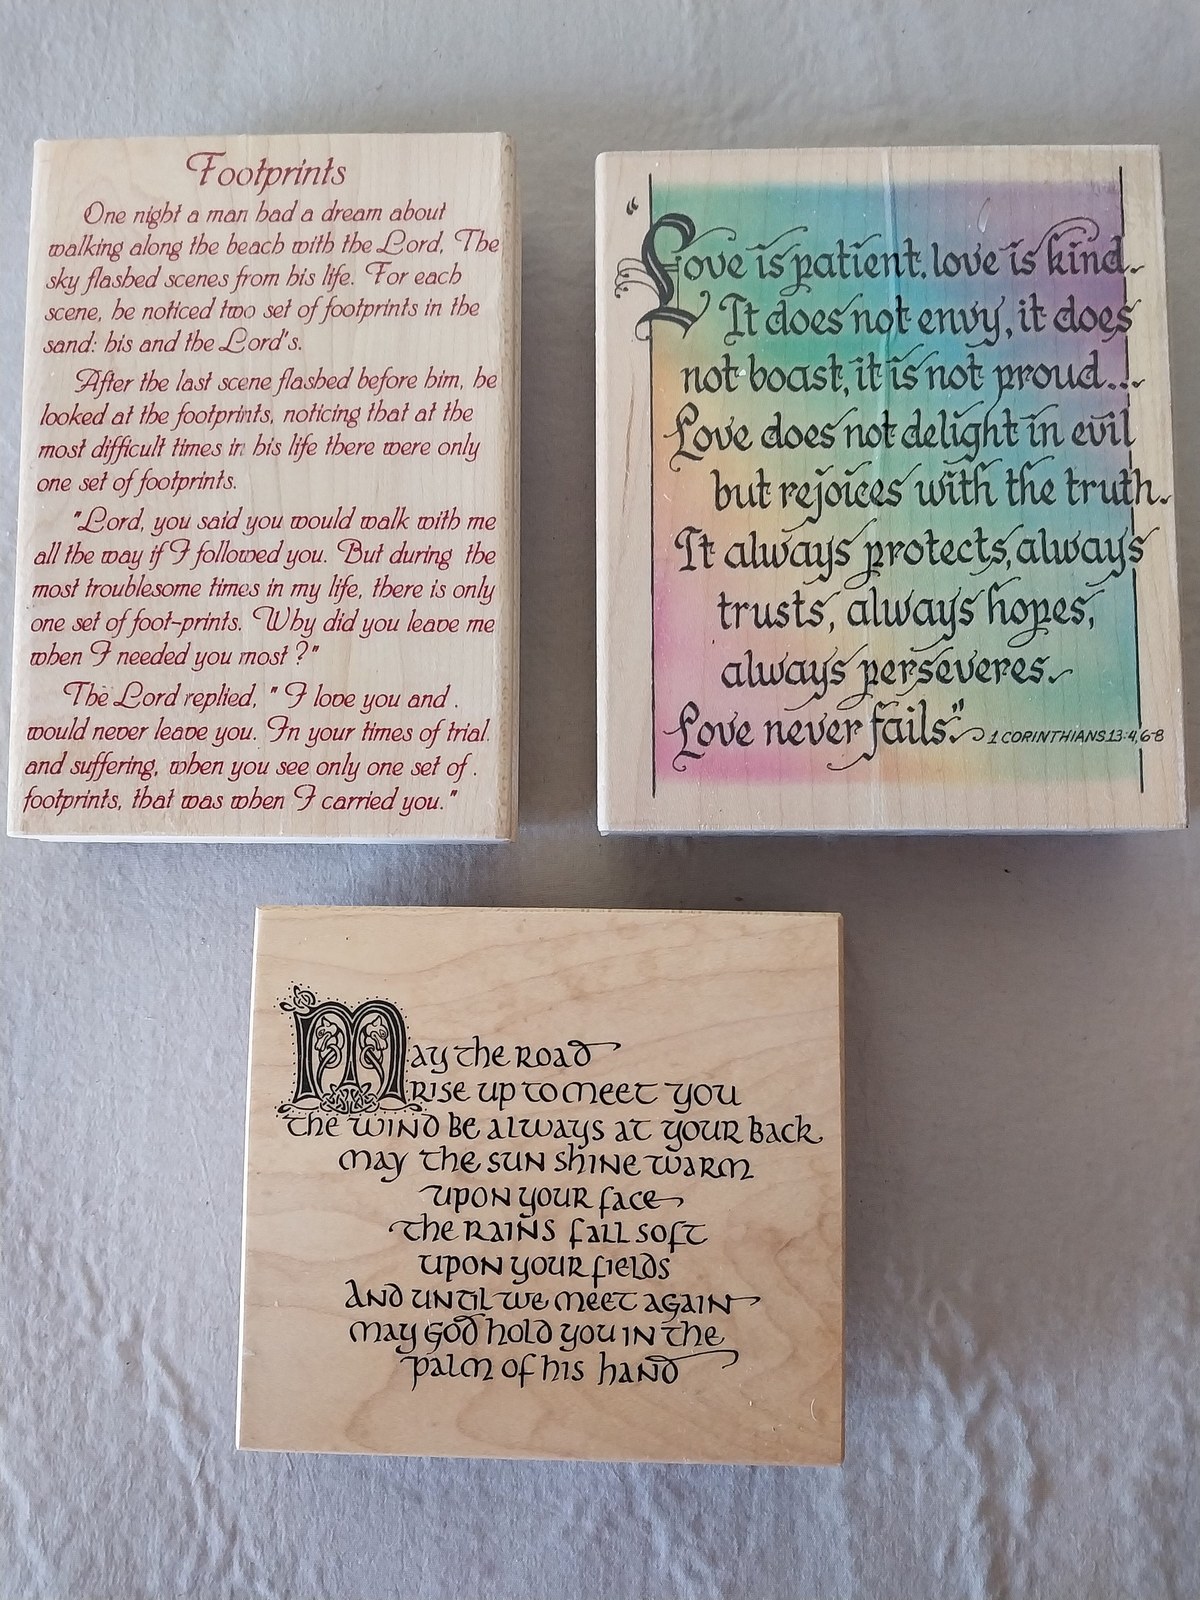 Footprints
One night a man had a dream about
walking along the beach with the Lord, The
sky flashed scenes from his life. For each
scene, he noticed two set of footprints in the
sand: his and the Lord's.
After the last scene flashed before him, he
looked at the footprints, noticing that at the
most difficult times in his life there were only
one set of footprints.
"Lord, you said you would walk with me
all the way if I followed you. But during the
most troublesome times in my life, there is only
one set of foot-prints. Why did you leave me
when I needed you most ?"
The Lord replied, " I love you and
would never leave you. In your times of trial
and suffering, when you see only one set of
footprints, that was when I carried you."
"Love is patient, love is kind.
It does not envy, it does
not boast, it is not proud...
Love does not delight in evil
but rejoices with the truth.
It always protects, always
trusts, always hopes,
always perseveres.
Love never fails." 1 CORINTHIANS 13:4,6-8
May the road
rise up to meet you
the wind be always at your back
may the sun shine warm
upon your face
the rains fall soft
upon your fields
and until we meet again
may God hold you in the
palm of his hand